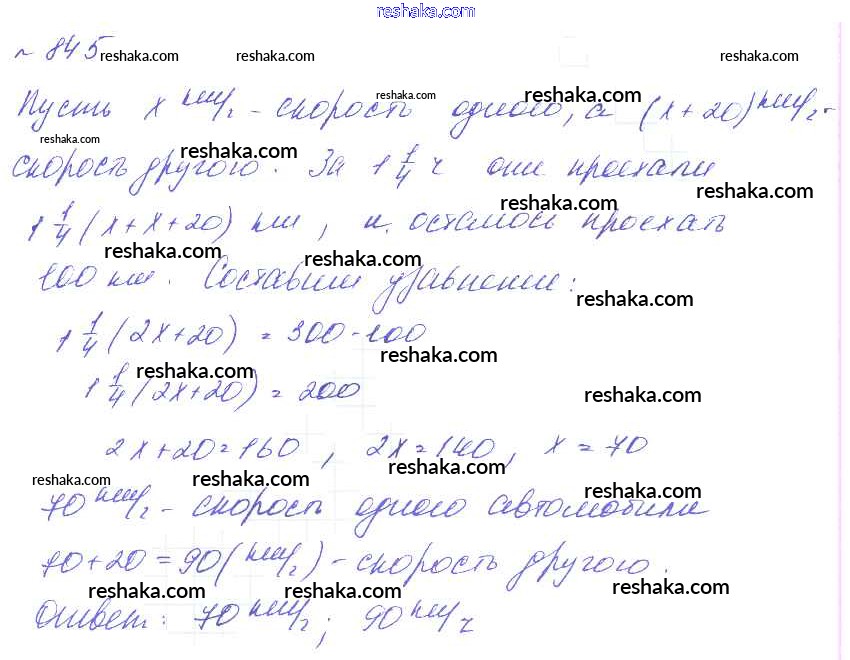 reshaka.com
№ 845 reshaka.com reshaka.com reshaka.com
reshaka.com reshaka.com
Пусть x км/ч - скорость одного, а (x+20) км/ч -
reshaka.com reshaka.com
скорость другого. За 1 1/4 ч они проехали
reshaka.com reshaka.com
1 1/4 (x+x+20) км, и осталось проехать
reshaka.com reshaka.com
100 км. Составим уравнение:
reshaka.com
1 1/4 (2x+20) = 300-100
reshaka.com reshaka.com
1 1/4 (2x+20) = 200
reshaka.com
2x+20=160, 2x=140, x=70
reshaka.com reshaka.com reshaka.com reshaka.com
70 км/ч - скорость одного автомобиля
70+20=90(км/ч) - скорость другого.
reshaka.com reshaka.com reshaka.com
Ответ: 70 км/ч; 90 км/ч